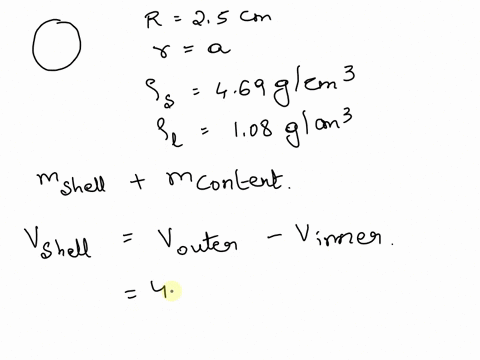 R = 2.5 cm
r = a
ρs = 4.69 g/cm³
ρl = 1.08 g/cm³
mshell + mcontent.
Vshell = Vouter - Vinner.
= 4.